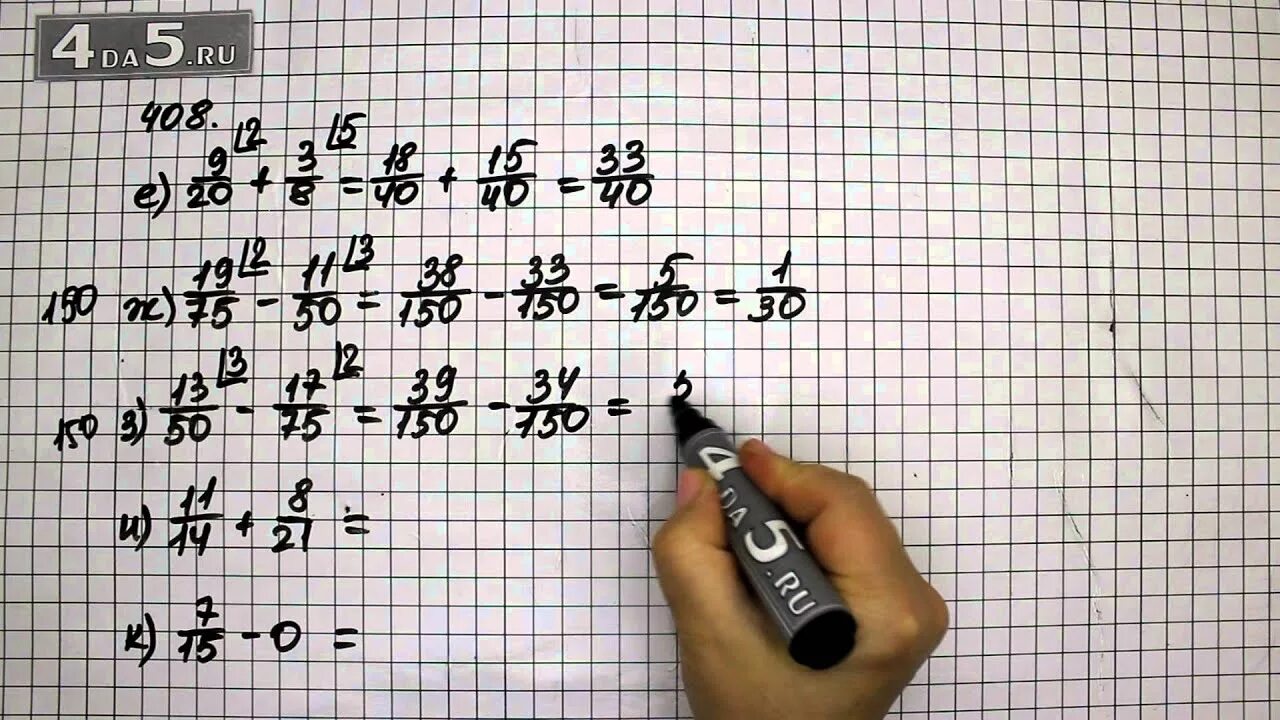 4DA5.RU
408.
е) 9/20 ⌊2 + 3/8 ⌊5 = 18/40 + 15/40 = 33/40
150 ж) 19/75 ⌊2 - 11/50 ⌊3 = 38/150 - 33/150 = 5/150 = 1/30
150 з) 13/50 ⌊3 - 17/75 ⌊2 = 39/150 - 34/150 =
и) 11/14 + 8/21 =
к) 7/15 - 0 =
4DA5.RU